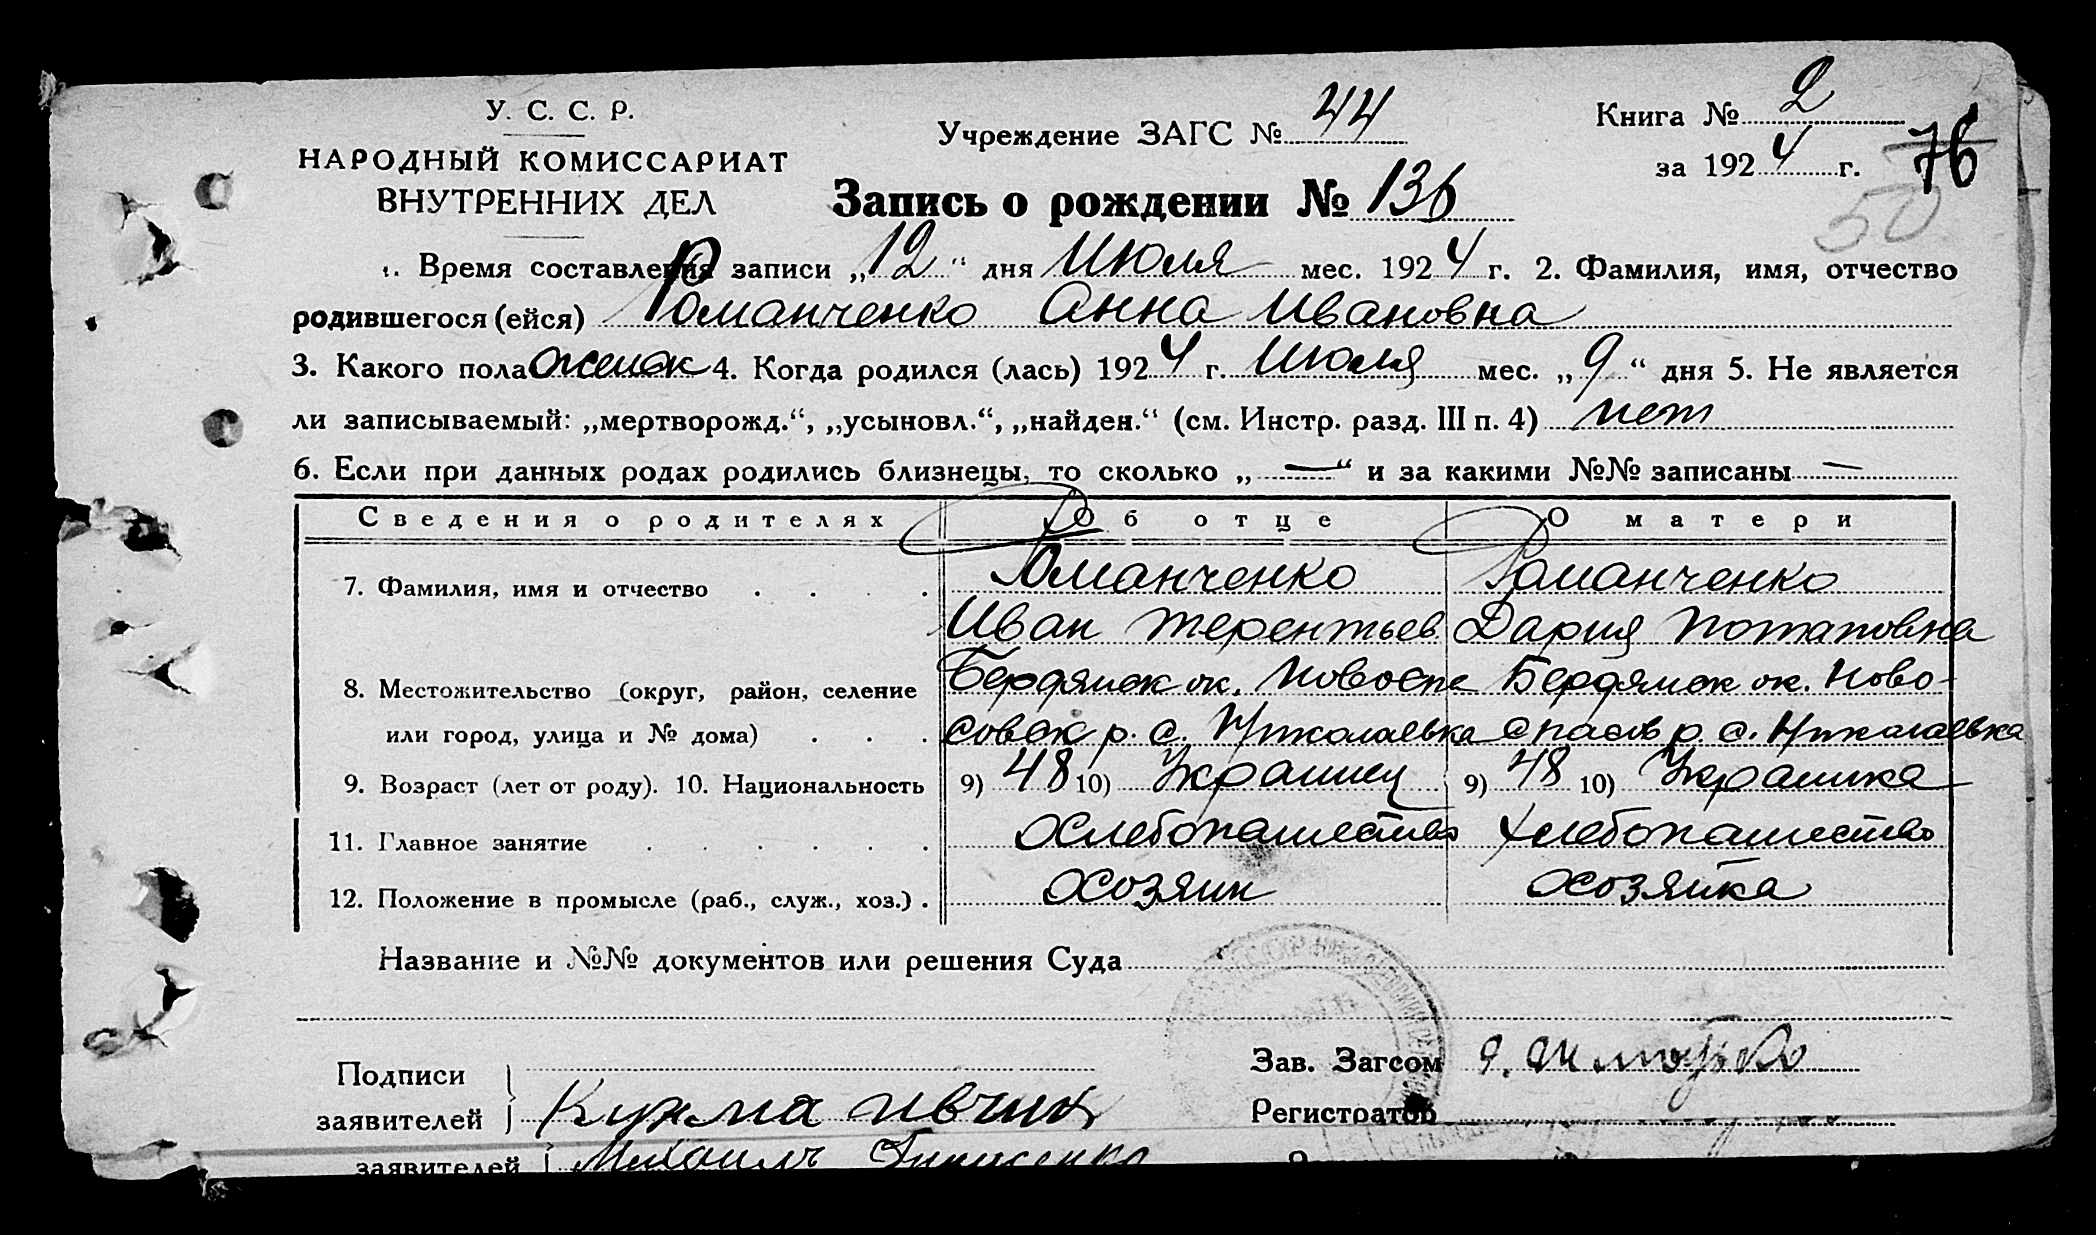 У. С. С. Р.
НАРОДНЫЙ КОМИССАРИАТ
ВНУТРЕННИХ ДЕЛ
Учреждение ЗАГС № 44
Книга № 2
за 1924 г.
76
50
Запись о рождении № 136
1. Время составления записи „12“ дня Июля мес. 1924 г. 2. Фамилия, имя, отчество
родившегося (ейся) Романченко Анна Ивановна
3. Какого пола женск 4. Когда родился (лась) 1924 г. Июля мес. „9“ дня 5. Не является
ли записываемый: „мертворожд.“, „усыновл.“, „найден.“ (см. Инстр. разд. III п. 4) нет
6. Если при данных родах родились близнецы, то сколько „—“ и за какими №№ записаны —
Сведения о родителях Об отце О матери
7. Фамилия, имя и отчество . . . . Романченко Романченко
Иван Терентьев Дария Потаповна
8. Местожительство (округ, район, селение Бердянск ок. Новоспа Бердянск ок. Ново-
или город, улица и № дома) . . . совск р. с. Николаевка спасов р. с. Николаевка
9. Возраст (лет от роду). 10. Национальность 9) 48 10) Украинец 9) 48 10) Украинка
11. Главное занятие . . . . . . Хлебопашество Хлебопашество
12. Положение в промысле (раб., служ., хоз.) . Хозяин Хозяйка
Название и №№ документов или решения Суда
Подписи
заявителей
Зав. Загсом
Регистратор
заявителей Михаилъ